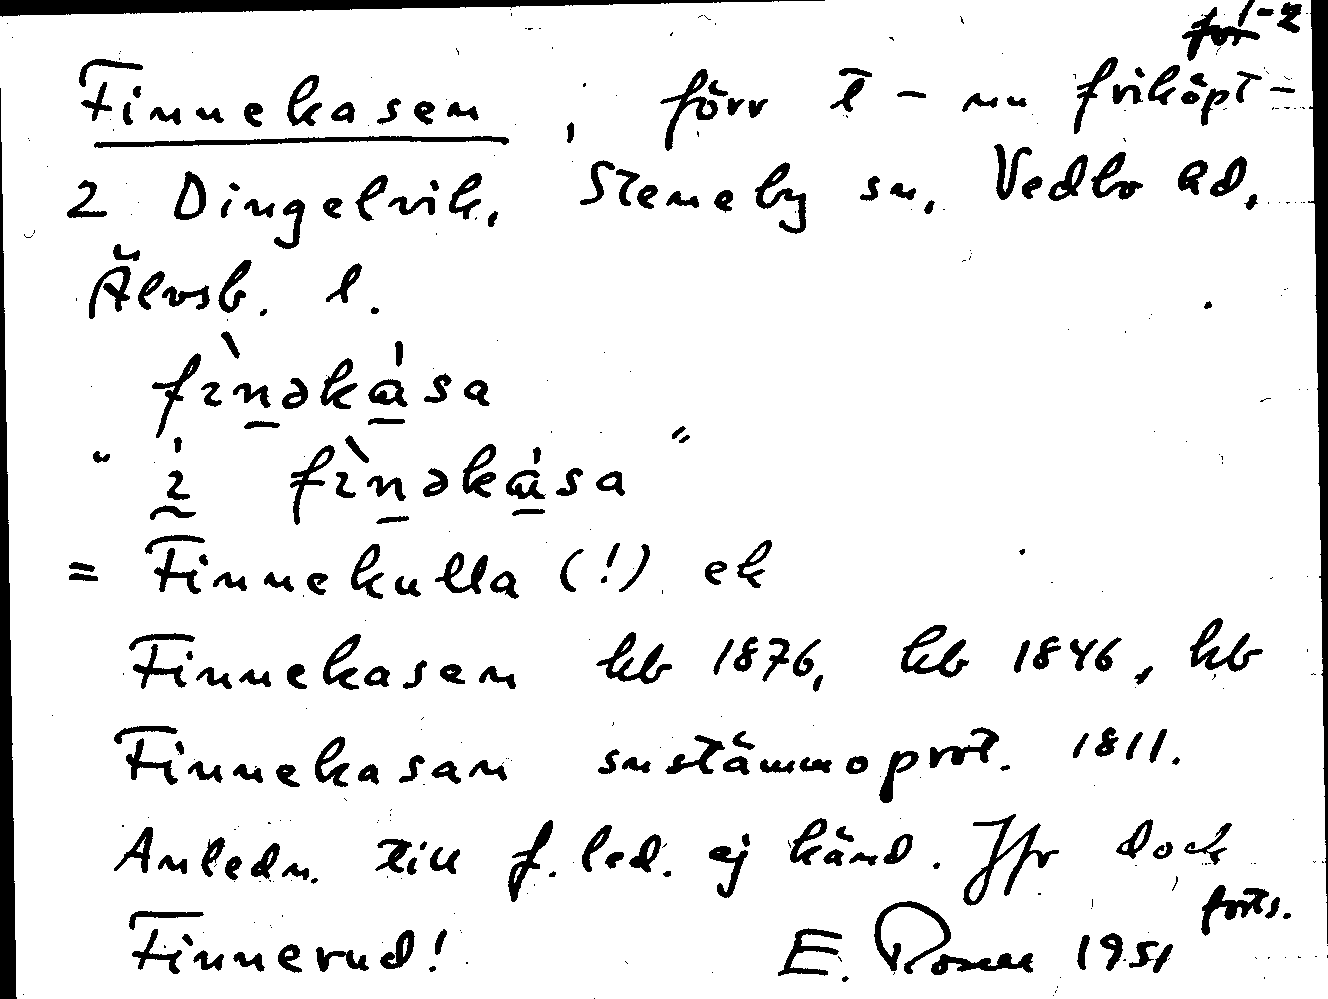 1-2
Finnekasen, förr t – nu friköpt –
2 Dingelvik, Steneby sn, Vedbo hd,
Älvsb. l.
fìnəkása
"í fìnəkása"
= Finnekulla (!) ek
Finnekasen kb 1876, kb 1846, hb
Finnekasan snstämmoprot. 1811.
Anledn. till f. led. ej känd. Jfr dock
Finnerud! E. Rosell 1951 forts.